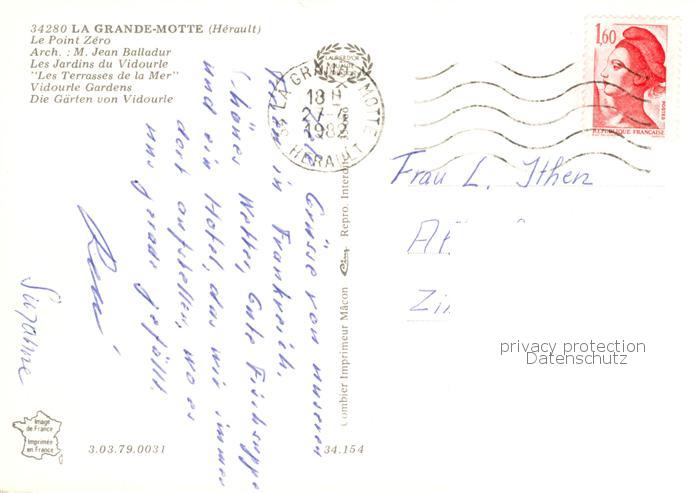 34280 LA GRANDE-MOTTE (Hérault)
Le Point Zéro
Arch. : M. Jean Balladur
Les Jardins du Vidourle
"Les Terrasses de la Mer"
Vidourle Gardens
Die Gärten von Vidourle
LA GRANDE MOTTE
18 H
27-
1982
HERAULT
1,60
POSTES
REPUBLIQUE FRANÇAISE
Grüsse von unseren
in Frankreich.
Schönes Wetter, Gute Fischsuppe
und ein Hotel, das wir immer
dort aufstellen, wo es
uns gerade gefällt.
René
Suzanne
Combier Imprimeur Mâcon Cim Repro. Interdite
Frau L. Ithen
privacy protection
Datenschutz
Image
de France
Imprimée
en France
3.03.79.0031
34.154